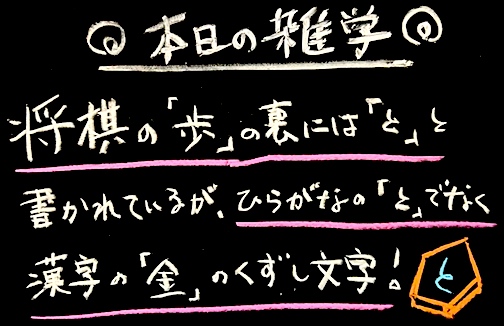 本日の雑学
将棋の「歩」の裏には「と」と
書かれているが、ひらがなの「と」でなく
漢字の「金」のくずし文字!
と